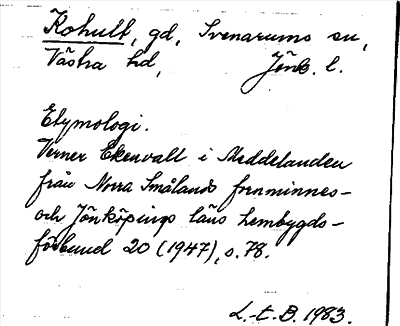 Kohult, gd, Svenarums sn,
Västra hd, Jönk. l.
Etymologi.
Verner Ekenvall i Meddelanden
från Norra Smålands fornminnes-
och Jönköpings läns hembygds-
förbund 20 (1947), s. 78.
L.-E. B. 1983.